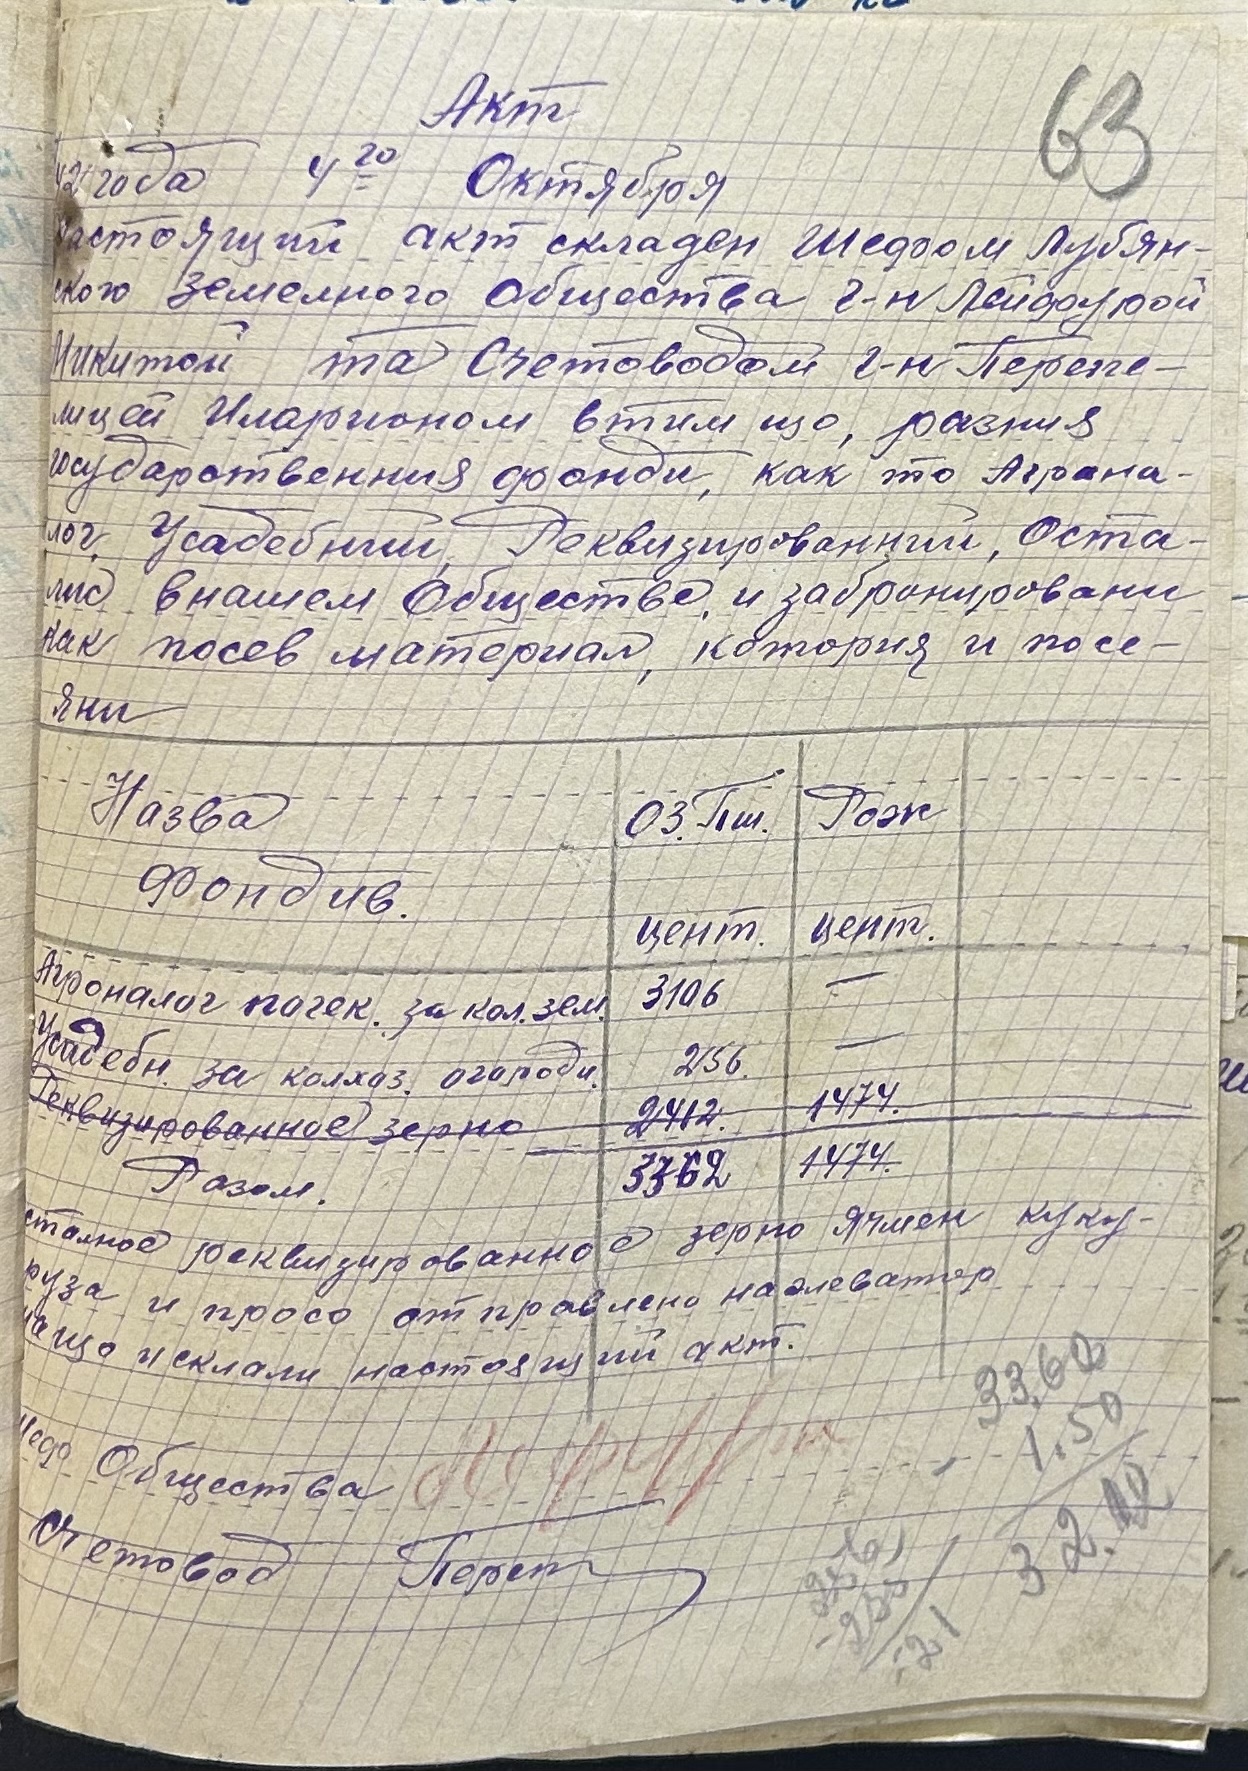 63
Акт
42 года 4го Октября
Настоящий акт складен Шефом Лубян-
ского Земелного Общества г-н
Микитой та Счетоводом г-н Перепе-
лицей Иларионом втим що, разния
государственния фонди, как то Аграна-
лог, Усадебний, Реквизированний, Оста-
лис внашем Обществе, и забронировани
как посев материал, котория и посе-
яни
Назва Фондив. Оз. Пш. цент. Рож цент.
Агроналог за кол. зем. 3106 —
Усадебн. за колхоз. огороди. 256. —
Реквизированное зерно 2412. 1474.
Разом. 3362 1474.
сталное реквизированное зерно Ячмен куку-
руза и просо отправлено наэлеватор
нащо и склали настоящий акт.
Шеф Общества
Счетовод Переп
33,62
1.50
32.12